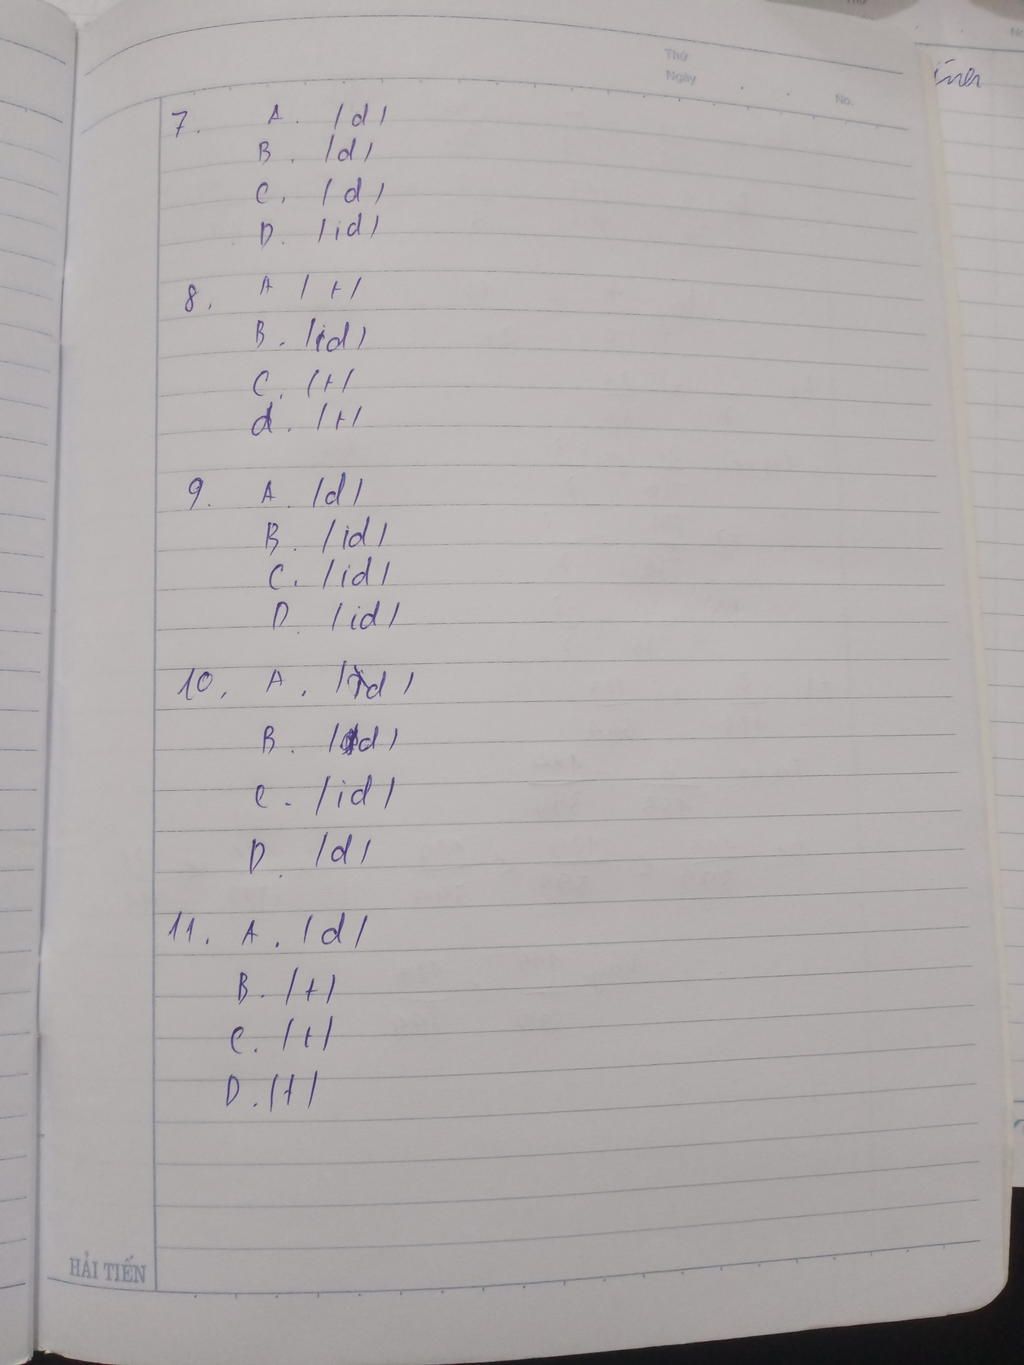 Thứ
Ngày
No.
7. A. /d/
B. /d/
C. /d/
D. /id/
8. A /t/
B. /id/
C. /t/
d. /t/
9. A. /d/
B. /id/
C. /id/
D. /id/
10. A. /id/
B. /id/
C. /id/
D. /d/
11. A. /d/
B. /t/
C. /t/
D. /t/
HẢI TIẾN